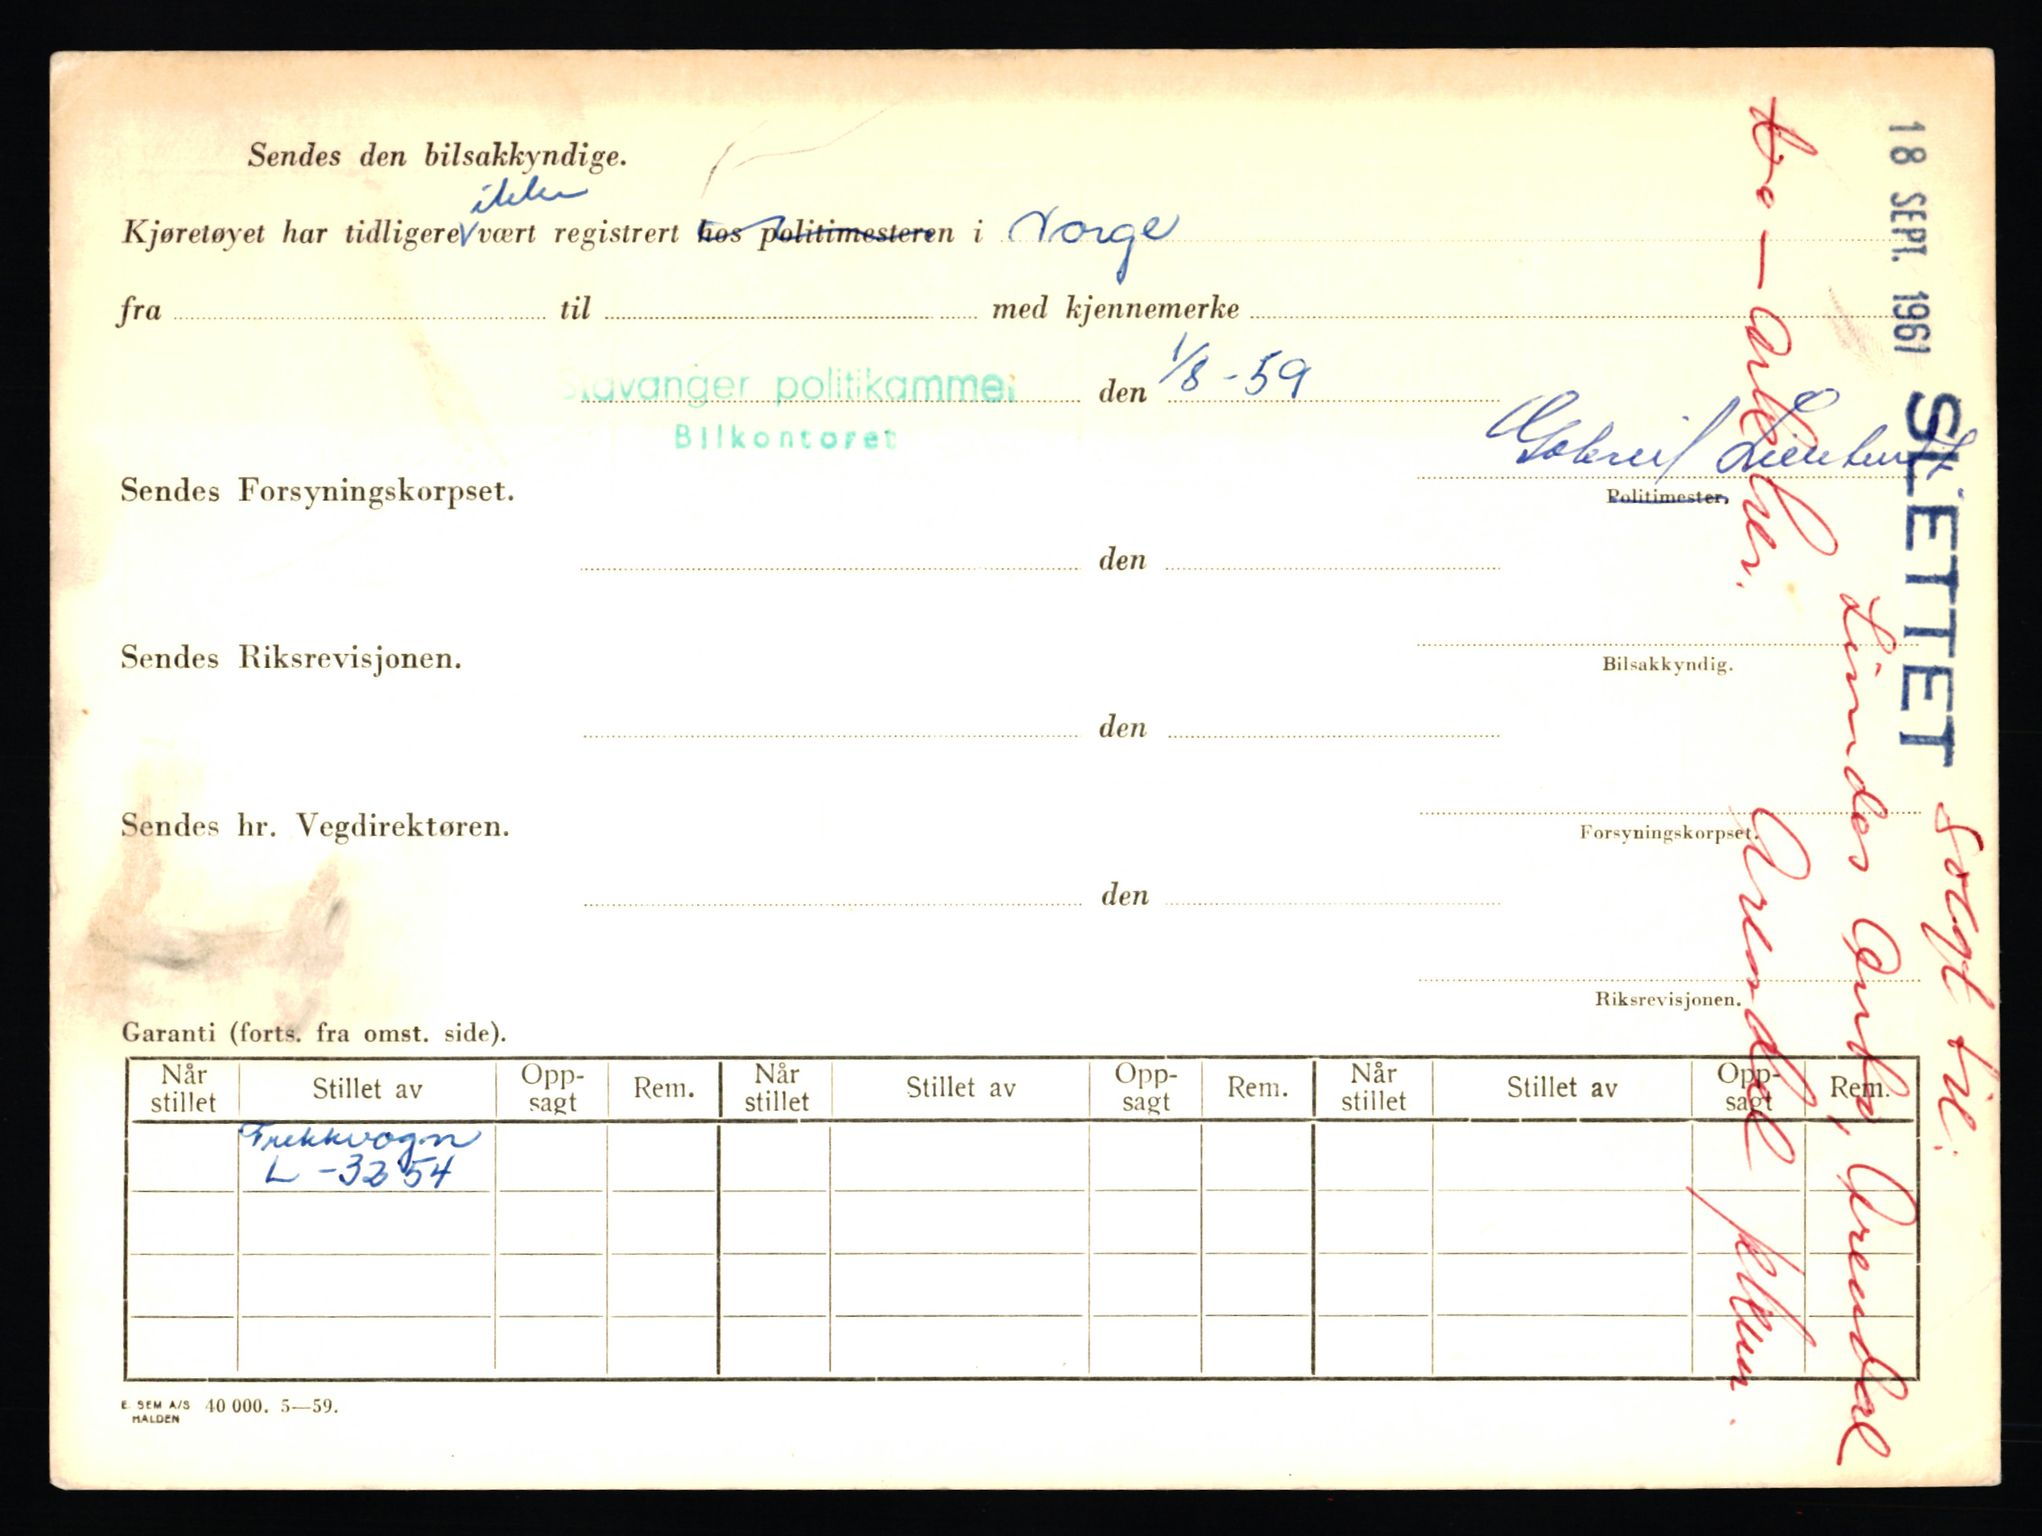 Sendes den bilsakkyndige.
Kjøretøyet har tidligere ikke vært registrert hos politimesteren i Norge
fra til med kjennemerke
Stavanger politikammer den 1/8-59
Bilkontoret
Gabriel
Sendes Forsyningskorpset. Politimester.
den
Sendes Riksrevisjonen. Bilsakkyndig.
den
Sendes hr. Vegdirektøren. Forsyningskorpset.
den
Riksrevisjonen.
Garanti (forts. fra omst. side).
Når stillet Stillet av Opp-sagt Rem. Når stillet Stillet av Opp-sagt Rem. Når stillet Stillet av Opp-sagt Rem.
Trekkvogn
L-3254
E. SEM A/S 40 000. 5—59.
HALDEN
18 SEPT. 1961 SLETTET
Solgt til:
Lindes Arendal
Arendal pkkm.